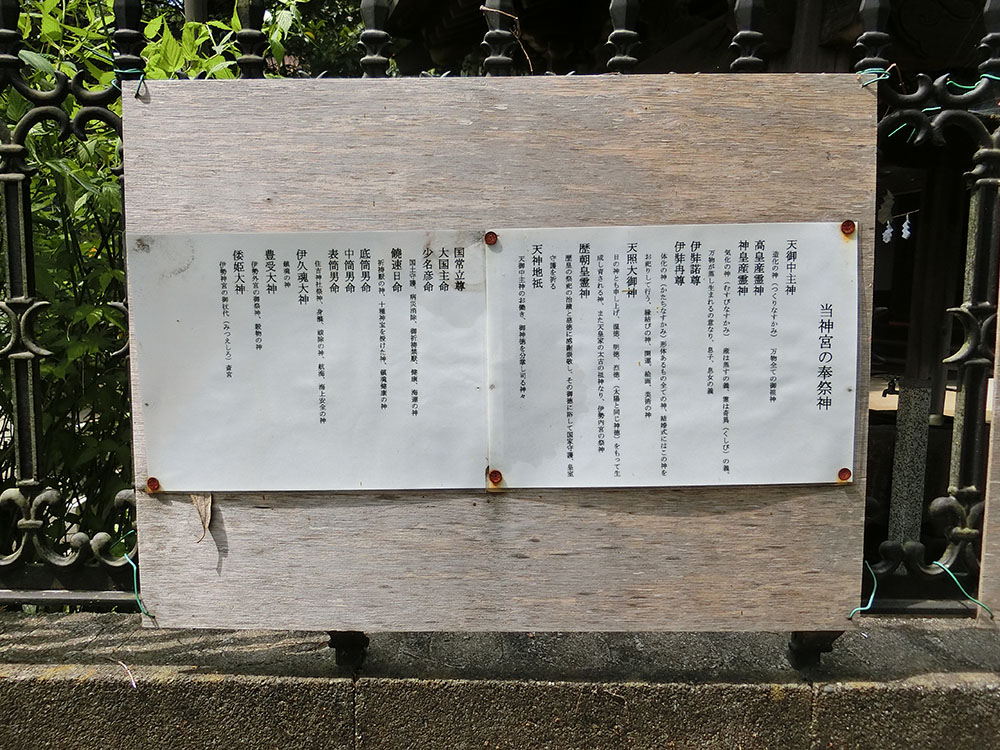 当神宮の奉祭神
天御中主神
造化の神(つくりなすかみ) 万物全ての御祖神
高皇産霊神
神皇産霊神
気化の神(むすびなすかみ) 産は蒸すの義、霊は奇異(くしび)の義、
万物が蒸し生まれるの意なり、息子、息女の義
伊駐諾尊
伊駐冉尊
体化の神(かたちなすかみ)形体あるもの全ての神、結婚式にはこの神を
お祀りして行う、縁結びの神、開運、絵画、美術の神
天照大御神
日の神とも申し上げ、温徳、明徳、烈徳、(太陽と同じ神徳)をもって生
成し育される神、また天皇家の太古の祖神なり、伊勢内宮の祭神
歴朝皇霊神
歴皇の祭祀の治績と慈徳に感謝崇敬し、その御徳に浴して国家守護、皇室
守護を祈る
天神地祇
天御中主神のお働き、御神徳を分掌し司る神々
国常立尊
大国主命
少名彦命
国土守護、病災消除、御祈祷禁厭、健康、海運の神
饒速日命
祈祷厭の神、十種神宝を授けた神、鎮魂健康の神
底筒男命
中筒男命
表筒男命
住吉神社祭神、身禊、祓除の神、航海、海上安全の神
伊久魂大神
鎮魂の神
豊受大神
伊勢外宮の御祭神、穀物の神
倭姫大神
伊勢神宮の御杖代(みつえしろ)斎宮